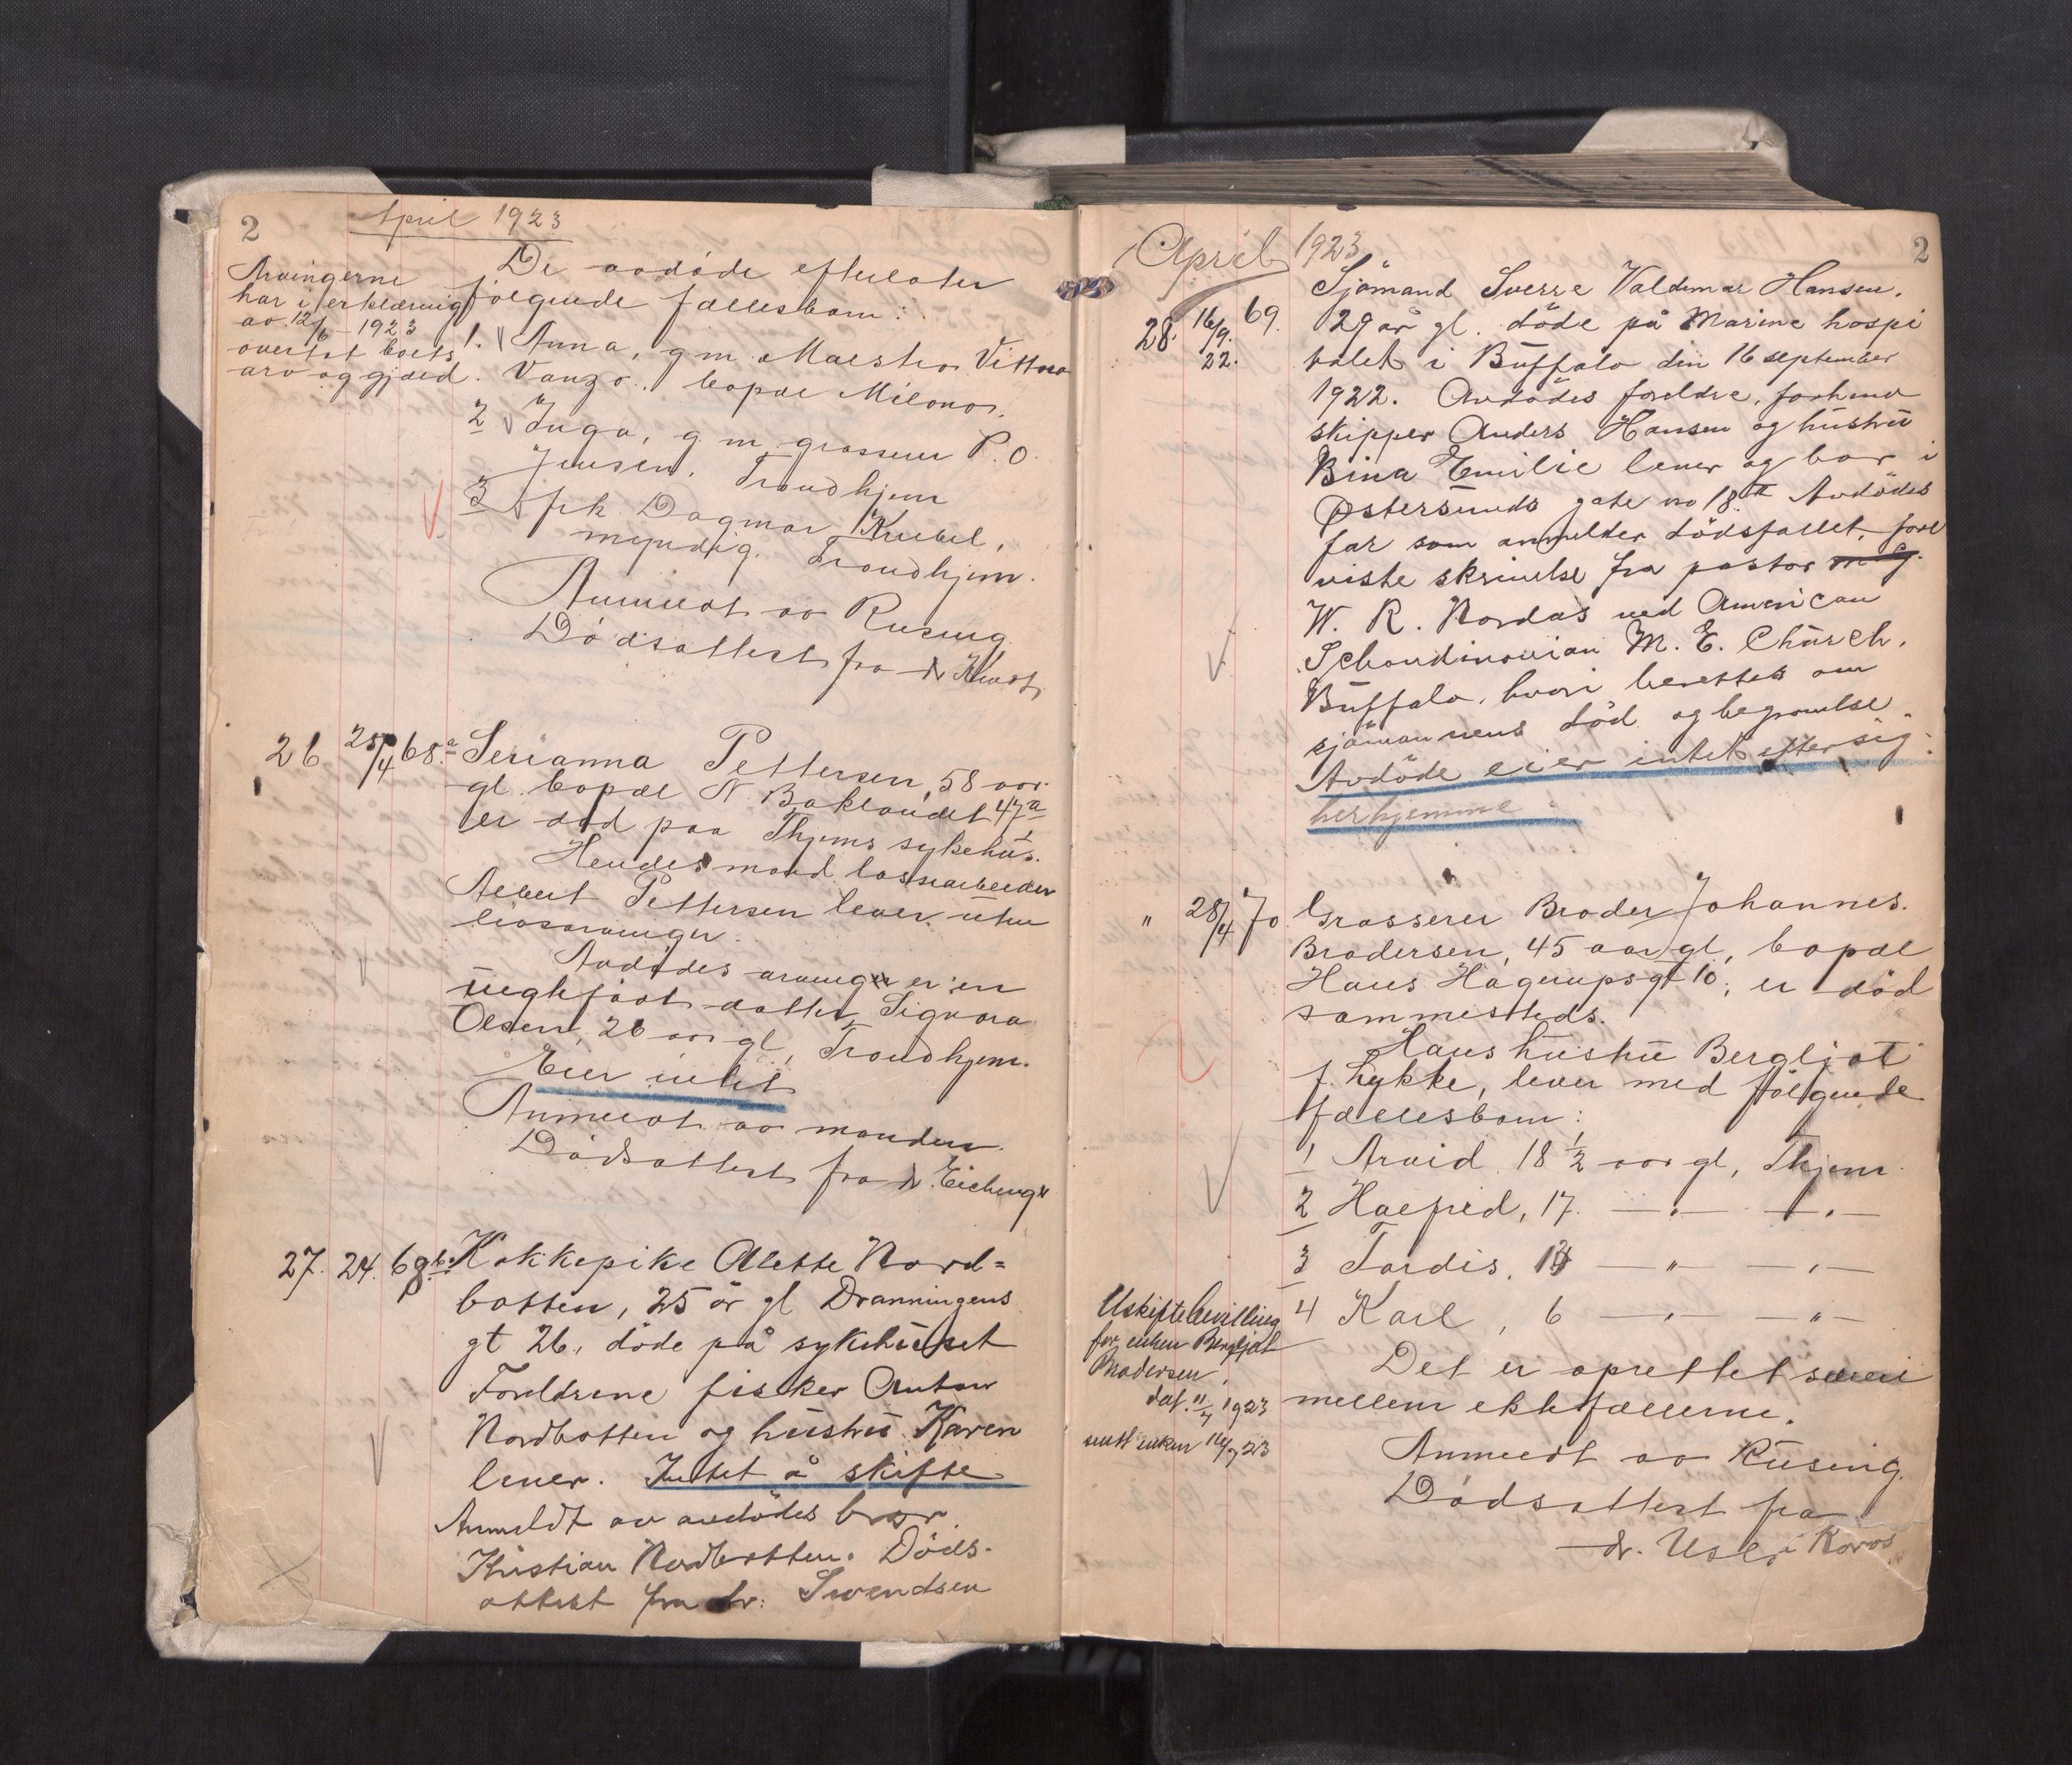 2
April 1923
Arvingerne
har i erklæring
av 12/6 - 1923
overtat boets
arv og gjæld.
De avdøde efterlater
følgende fællesbarn:
1. Anna, g m Maestro Vittorio
Vanzo, bopæl Milano.
2 Inga, g m grosserer P. O.
Jensen, Trondhjem
3 frk. Dagmar
myndig. Trondhjem.
Anmeldt av Rusing
Dødsattest fra dr
26 25/4 68.a Serianna Pettersen, 58 aar
gl. bopæl N. Baklandet 47a
er død paa Thjems sykehus.
Hendes mand lossearbeider
Albert Pettersen lever uten
livsarvinger.
Avdødes arvinger er en
uegtefødt datter Signora
Olsen, 26 aar gl, Trondhjem.
Eier intet
Anmeldt av manden
Dødsattest fra dr.
27. 24. 68b. Kokkepike Alette Nord=
botten, 25 år gl Dronningens
gt 26, døde på sykehuset
Foreldrene fisker Anton
Nordbotten og hustru Karen
lever. Intet å skifte
Anmeldt av avdødes bror
Kristian Nordbotten. Døds-
attest fra dr. Svendsen
April 1923
2
28. 16/9. 22. 69. Sjömand Sverre Valdemar Hansen.
29 år gl. döde på Marine hospi
talet i Buffalo den 16 september
1922. Avdödes foreldre, forhenv
skipper Anders Hansen og hustru
Bina Emilie lever og bor i
Østersunds gate no 18II Avdödes
far som anmelder dödsfallet, fore
viste skrivelse fra pastor
W. R. Nordas ved American
Schandinavian M. E. Church,
Buffalo, hvori berettes om
sjömannens död og begravelse.
Avdöde eier intet efter sig
her hjemme
" 28/4 70 Grosserer Broder Johannes
Brodersen, 45 aar gl., bopæl
Hans Hagerupsgt 10, er død
sammesteds.
Hans hustru Bergljot
f. Lykke, lever med følgende
fællesbarn:
1 Arvid 18 1/2 aar gl, Thjem
2 Halfrid, 17. — " — — " —
3 Tordis, 13 — " — — " —
4 Karl, 6 — " — — " —
Uskiftebevilling
for enken Bergljot
Brodersen,
dat. 11/7 1923
sendt enken 16/7 23
Det er oprettet særeie
mellem ektefællerne.
Anmeldt av Rusing.
Dødsattest fra
dr. Usle i Røros